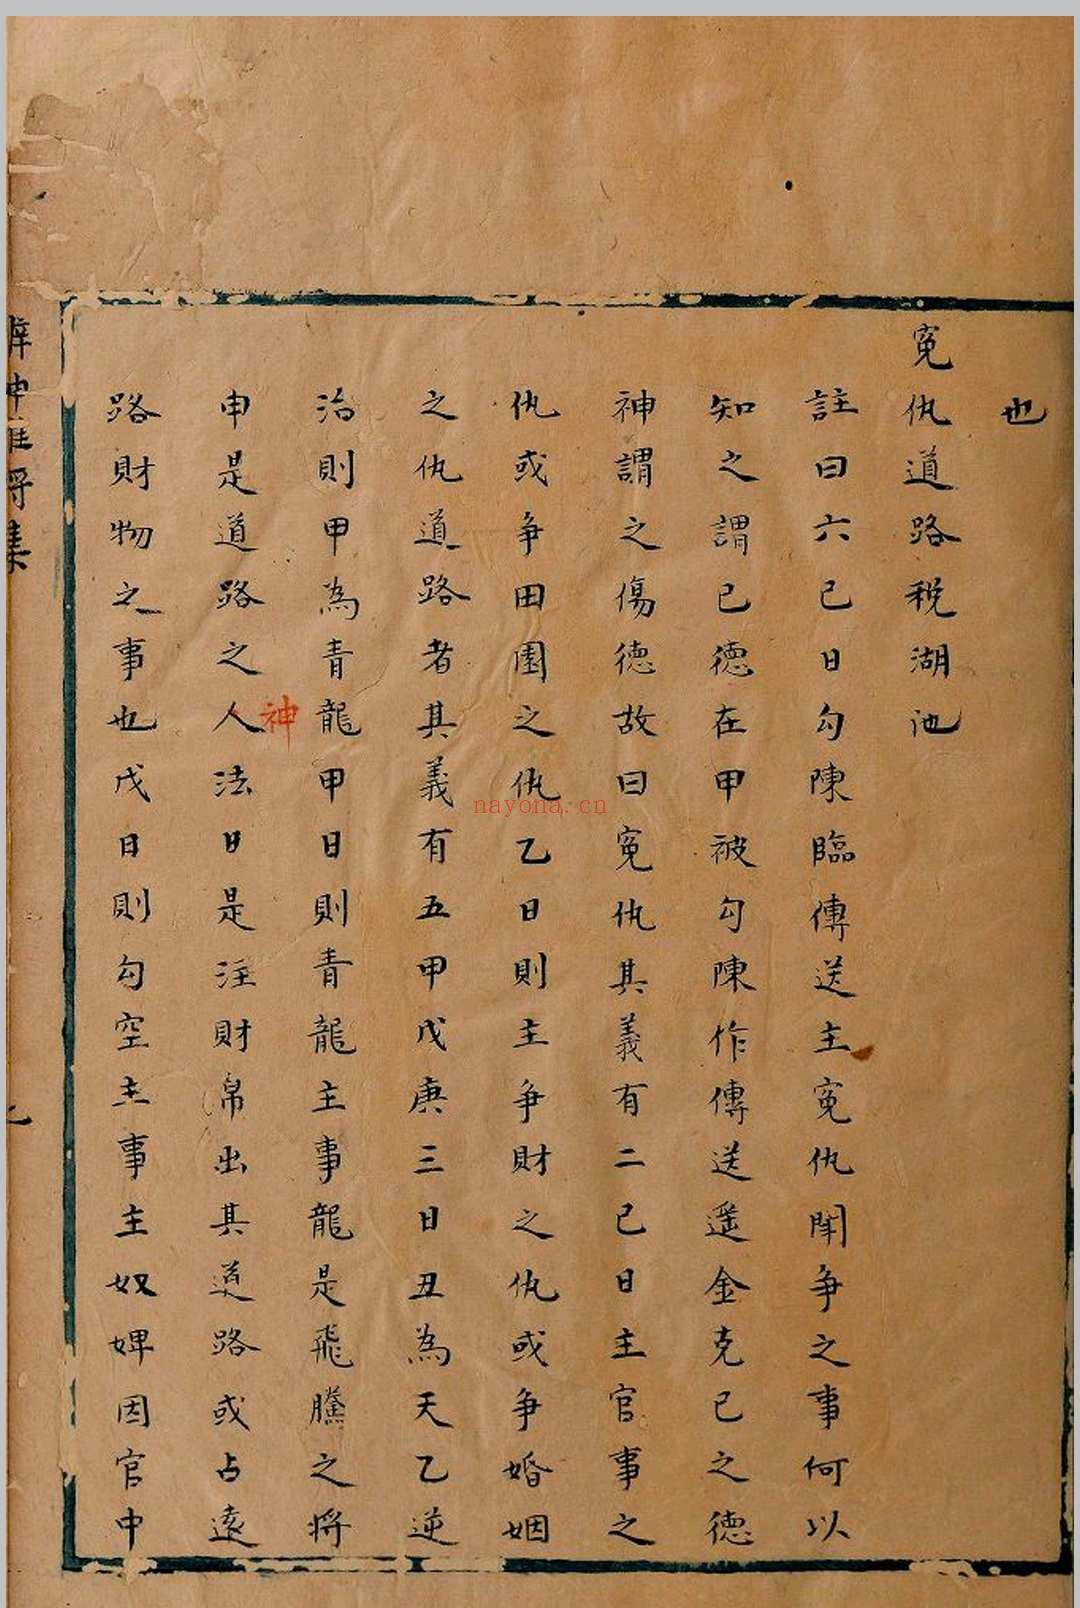 也
寃仇道路税湖池
註曰六己日勾陳臨傳送主寃仇鬪争之事何以
知之謂己德在甲被勾陳作傳送遥金克己之德
神謂之傷德故曰寃仇其義有二己日主官事之
仇或争田園之仇乙日則主争財之仇或争婚姻
之仇道路者其義有五甲戊庚三日丑為天乙逆
治則甲為青龍甲日則青龍主事龍是飛騰之将
神
申是道路之人法日是注財帛出其道路或占遠
路財物之事也戊日則勾空主事主奴婢因官中
集
nayona.cn